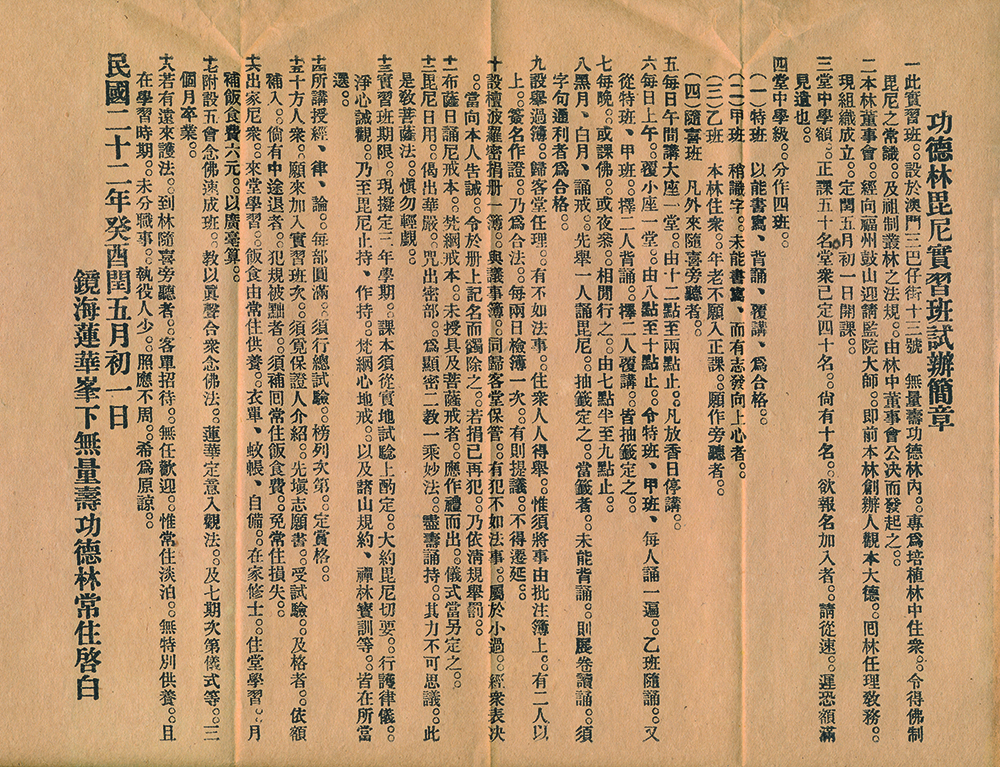 功德林毘尼實習班試辦簡章
一此實習班。。設於澳門三巴仔街十三號　無量壽功德林內。。專爲培植林中住衆。。令得佛制
毘尼之常識。。及祖制叢林之法規。。由林中董事會公決而發起之。。
二本林董事會。。經向福州鼓山迎請監院大師。。即前本林創辦人觀本大德。。回林任理教務。。
現組織成立。。定閏五月初一日開課。。
三堂中學額。。正課五十名堂衆已定四十名。。尙有十名。。欲報名加入者。。請從速。。遲恐額滿
見遺也。。
四堂中學級。。分作四班。。
（一）特班　以能書寫、背誦、覆講、爲合格。。
（二）甲班　稍識字。。未能書寫、而有志發向上心者。。
（三）乙班　本林住衆。。年老不願入正課。。願作旁聽者。。
（四）隨喜班　凡外來隨喜旁聽者。。
五每日午間講大座一堂。。由十二點至兩點止。。凡放香日停講。。
六每日上午。。覆小座一堂。。由八點至十點止。。令特班、甲班、每人誦一遍。。乙班隨誦。。又
從特班、甲班。。擇二人背誦。。擇二人覆講。。皆抽籤定之。。
七每晚。。或課佛。。或夜叅。。相間行之。。由七點半至九點止。。
八黑月、白月、誦戒。。先舉一人誦毘尼。。抽籤定之。。當籤者。。未能背誦。。則展卷讀誦。。須
字句通利者爲合格。。
九設舉過簿。。歸客堂任理。。有不如法事。。住衆人人得舉。。惟須將事由批注簿上。。有二人以
上。。簽名作證。。乃爲合法。。每兩日檢簿一次。。有則提議。。不得遷延。。
十設檀波羅密捐册一簿。。與議事簿。。同歸客堂保管。。有犯不如法事。。屬於小過。。經衆表決
。。當向本人告誡。。令於册上記名而蠲除之。。若捐已再犯。。乃依淸規舉罰。。
十一布薩日誦尼戒本。。梵網戒本。。未授具及菩薩戒者。。應作禮而出。。儀式當另定之。。
十二毘尼日用。。偈出華嚴。。咒出密部。。爲顯密二教一乘妙法。。盡壽誦持。。其力不可思議。。此
是敎菩薩法。。愼勿輕觀。。
十三實習班期限。。現擬定三年學期。。課本須從實地試騐上酌定。。大約毘尼切要。。行護律儀。。
淨心誠觀。。乃至毘尼止持、作持。。梵網心地戒。。以及諸山規約、禪林寶訓等。。皆在所當
選。。
十四所講授經、律、論。。每部圓滿。。須行總試驗。。榜列次第。。定賞格。。
十五十方人衆。。願來加入實習班次。。須覓保證人介紹。。先塡志願書。。受試驗。。及格者。。依額
補入。。倘有中途退者。。犯規被黜者。。須補回常住飯食費。。免常住損失。。
十六出家尼衆。。來堂學習。。飯食由常住供養。。衣單、蚊帳、自備。。在家修士。。住堂學習。。月
補飯食費六元。。以廣毫算。。
十七附設五會念佛速成班。。敎以眞聲合衆念佛法。。蓮華定意入觀法。。及七期次第儀式等。。三
個月卒業。。
十八若有遠來護法。。到林隨喜旁聽者。。客單招待。。無任歡迎。。惟常住淡泊。。無特別供養。。且
在學習時期。。未分職事。。執役人少。。照應不周。。希爲原諒。。
民國二十二年癸酉閏五月初一日
鏡海蓮華峯下無量壽功德林常住啓白